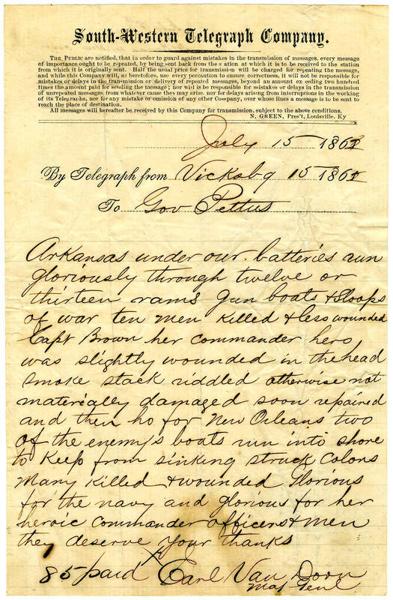 South-Western Telegraph Company.
THE PUBLIC are notified, that in order to guard against mistakes in the transmission of messages, every message
of importance ought to be repeated, by being sent back from the station at which it is to be received to the station
from which it is originally sent. Half the usual price for transmission will be charged for repeating the message,
and while this Company will, as heretofore, use every precaution to ensure correctness, it will not be responsible for
mistakes or delays in the transmission or delivery of repeated messages, beyond an amount exceeding two hundred
times the amount paid for sending the message; nor will it be responsible for mistakes or delays in the transmission of
unrepeated messages, from whatever cause they may arise, nor for delays arising from interruptions in the working
of its Telegraphs, nor for any mistake or omission of any other Company, over whose lines a message is to be sent to
reach the place of destination.
All messages will hereafter be received by this Company for transmission, subject to the above conditions.
N. GREEN, Pres't, Louisville, Ky
July 15 1862
By Telegraph from Vicksbg 15 1862
To Gov Pettus
Arkansas under our batteries run
gloriously through twelve or
thirteen rams Gun boats & Sloops
of war ten men Killed & less wounded
Capt Brown her commander hero
was slightly wounded in the head
smoke stack riddled otherwise not
materially damaged soon repaired
and then ho for New Orleans two
of the enemy's boats run into shore
to Keep from sinking struck Colors
Many Killed & wounded Glorious
for the navy and glorious for her
heroic Commander officers & men
they deserve your thanks
85 paid Earl Van Dorn
Maj Genl